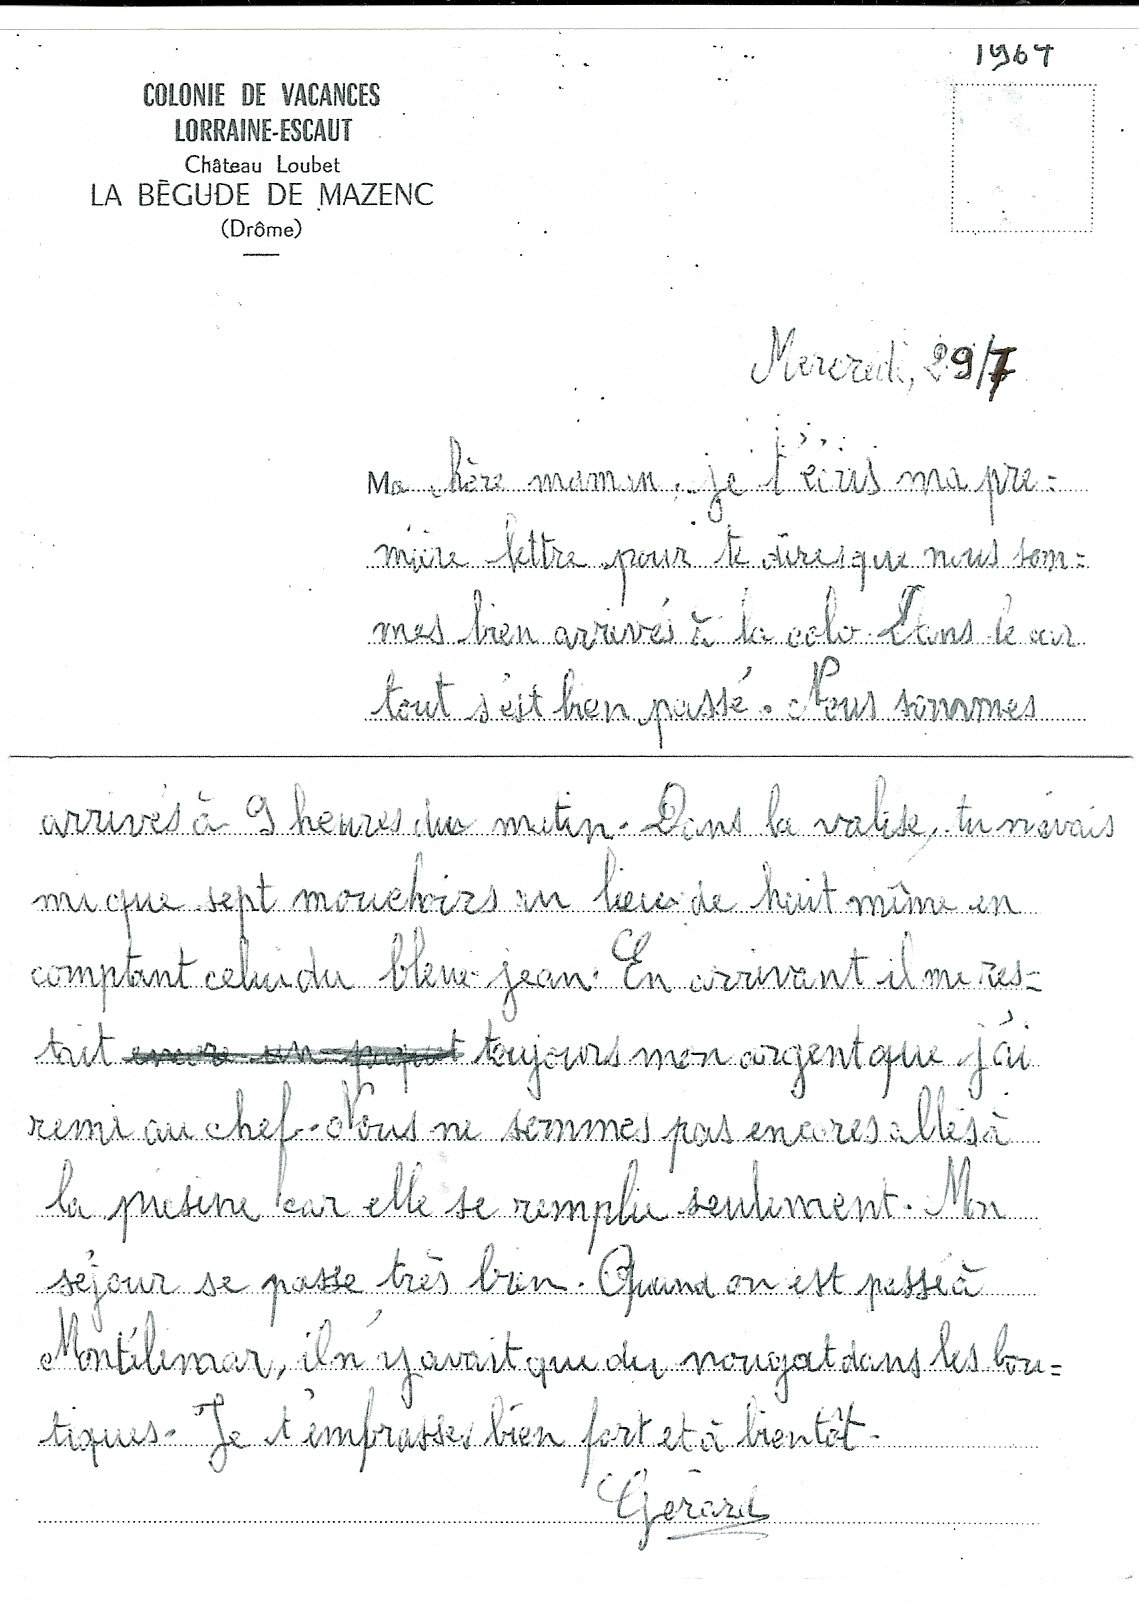 1964
COLONIE DE VACANCES
LORRAINE-ESCAUT
Château Loubet
LA BÉGUDE DE MAZENC
(Drôme)
Mercredi, 29/7
Ma chère maman, je t'écris ma pre=
mière lettre pour te dires que nous som=
mes bien arrivés à la colo. Dans le car
tout s'est bien passé. Nous sommes
arrivés à 9 heures du matin. Dans la valise, tu n'avais
mi que sept mouchoirs au lieu de huit même en
comptant celui du bleue-jean. En arrivant il me res=
tait encore un paquet toujours mon argent que j'ai
remi au chef. Nous ne sommes pas encores allés à
la piesine car elle se remplie seulement. Mon
séjour se passe très bien. Quand on est passé à
Montélimar, il n'y avait que du nougat dans les bou=
tiques. Je t'embrasses bien fort et à bientôt.
Gérard